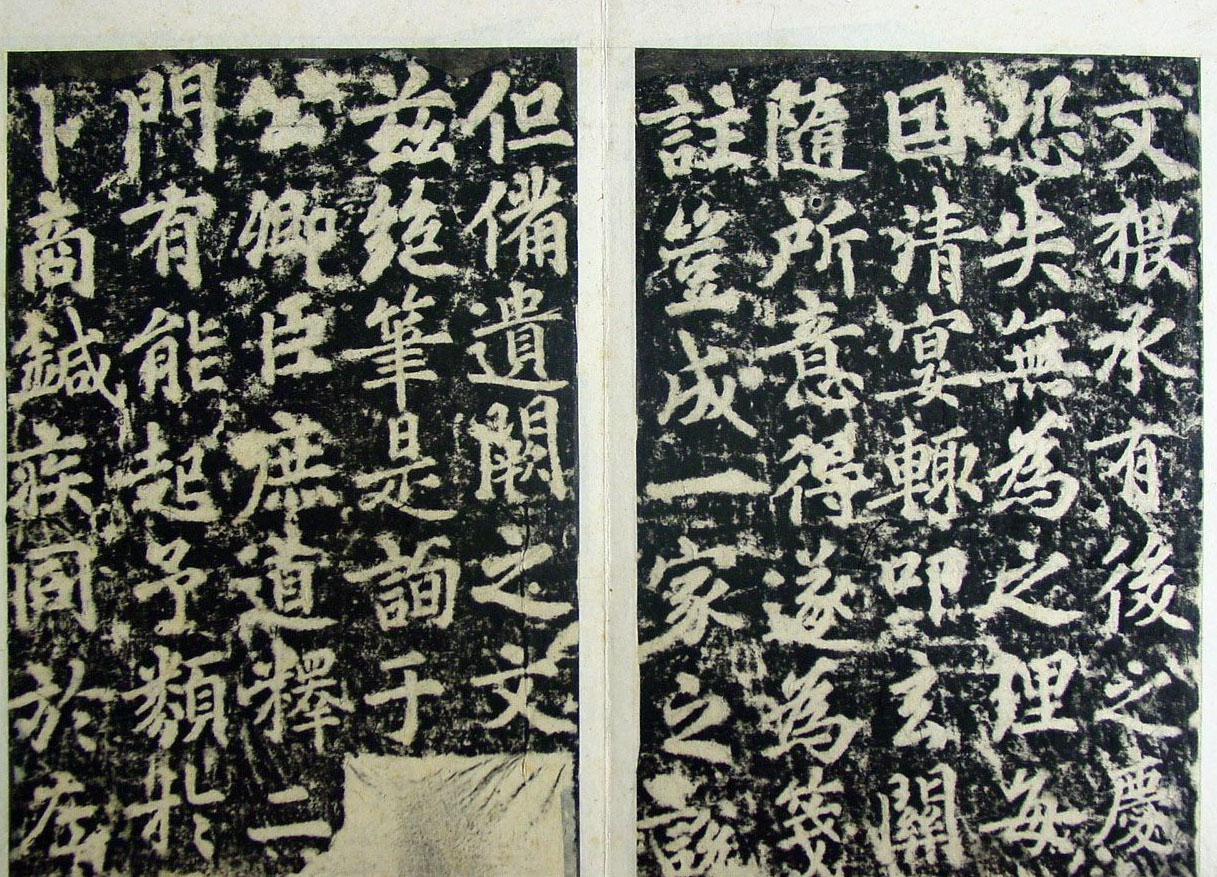 文猥承有後之慶
恐失無為之理每
囙清宴輙叩玄關
隨所意得遂為箋
註豈成一家之說
但備遺闕之文
茲絕筆是詢于
公卿臣庶道釋二
門有能起予類扵
卜商鍼疾同於左